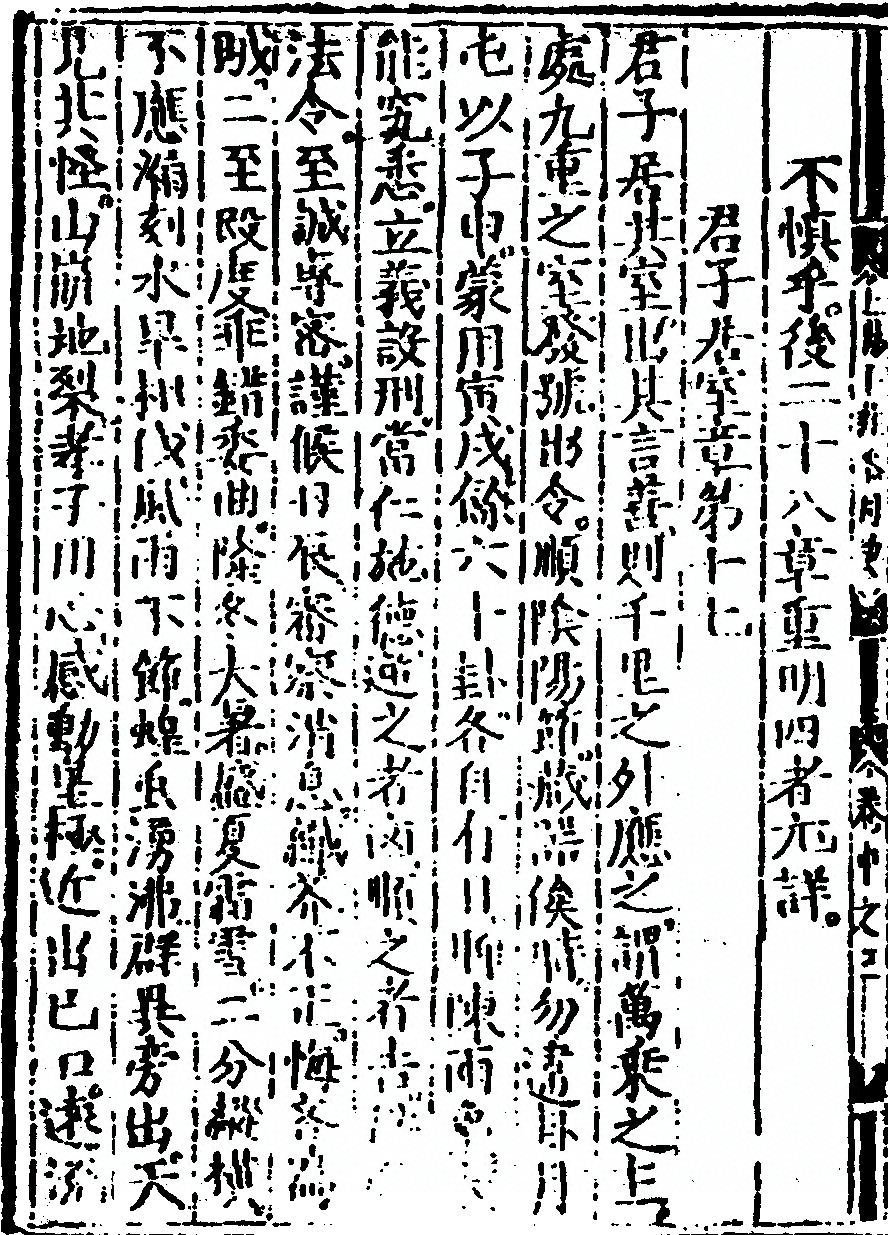 不慎乎。後二十八章重明四者尤詳。
君子居室章第十七
君子居其室出其言善則千里之外應之謂萬乘之主
處九重之室發號出令。順陰陽節藏器俟時勿違卦月
屯以子申蒙用寅戌餘六十卦各自有日聊陳兩
能究悉。立義設刑當仁施德逆之者凶順之者吉
法令。至誠專密謹候日辰審察消息纖芥不正悔吝為
賊。二至改度乖錯委曲隆冬大暑盛夏霜雪二分縱橫
不應漏刻水旱相伐風雨不節蝗虫湧沸群異旁出天
見其怪山崩地裂孝子用心感動皇極。近出己口遠流